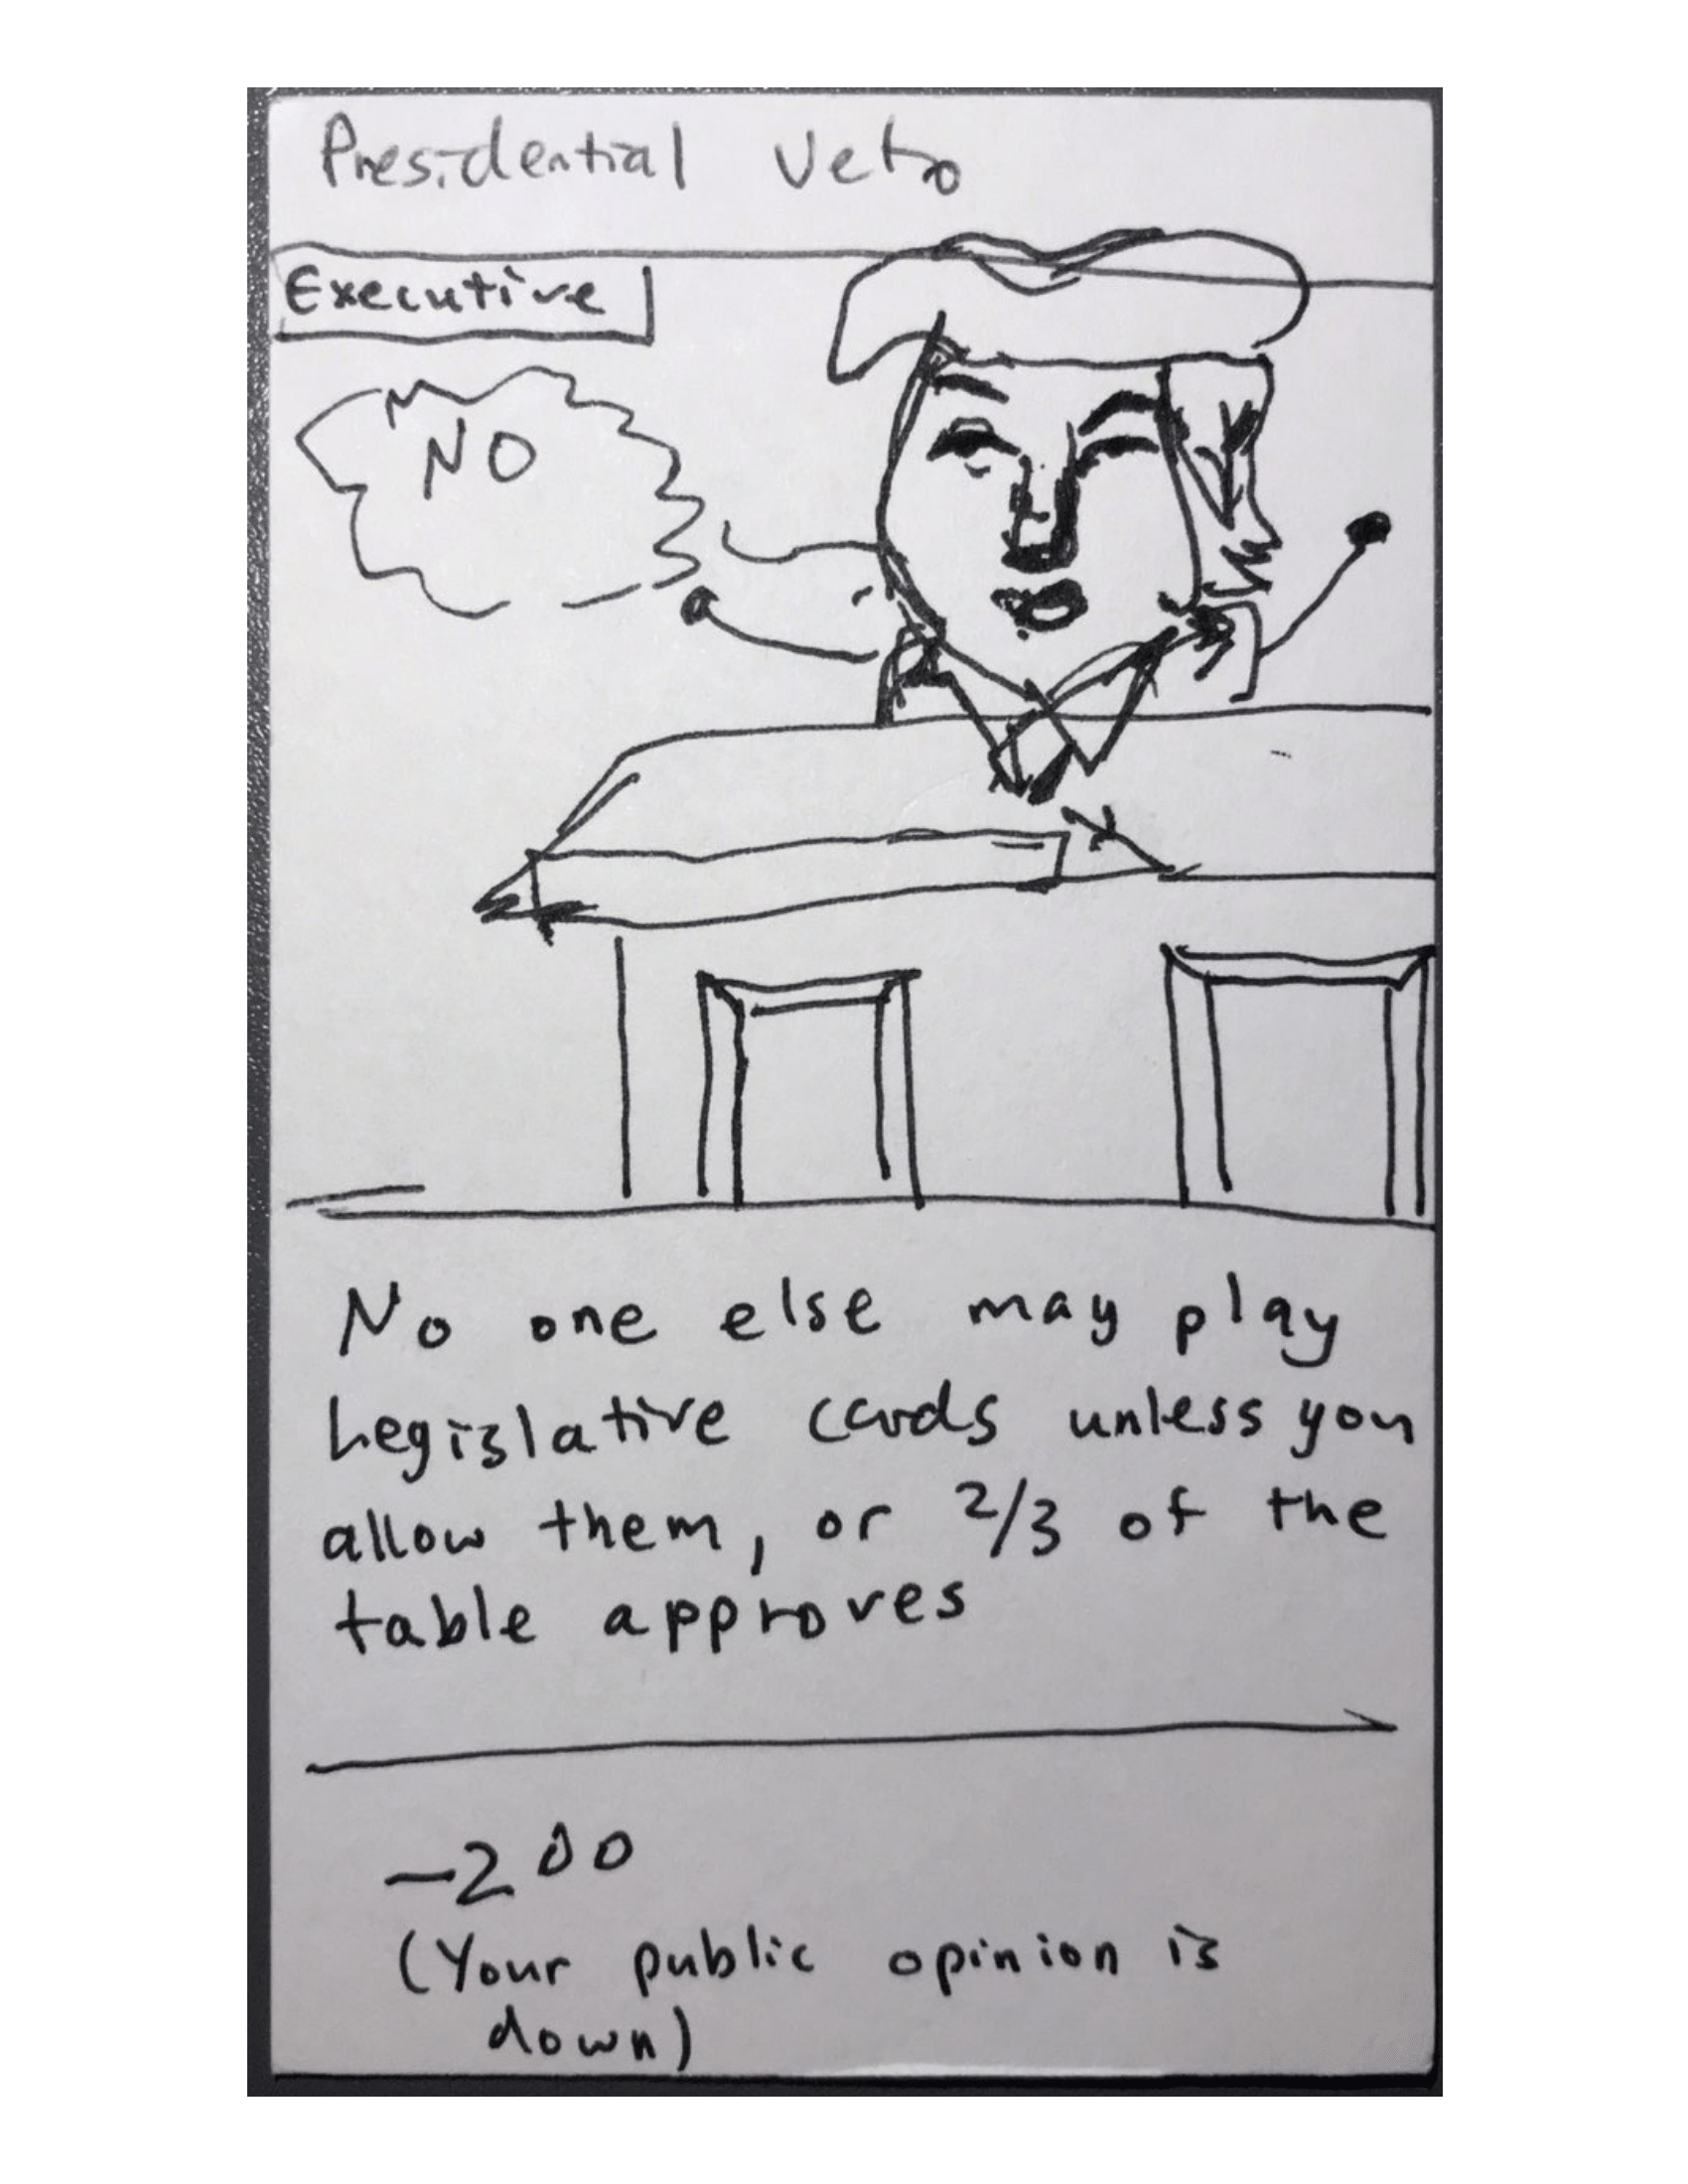 Presidential Veto
Executive
NO
No one else may play
Legislative cards unless you
allow them, or 2/3 of the
table approves
-200
(Your public opinion is
down)